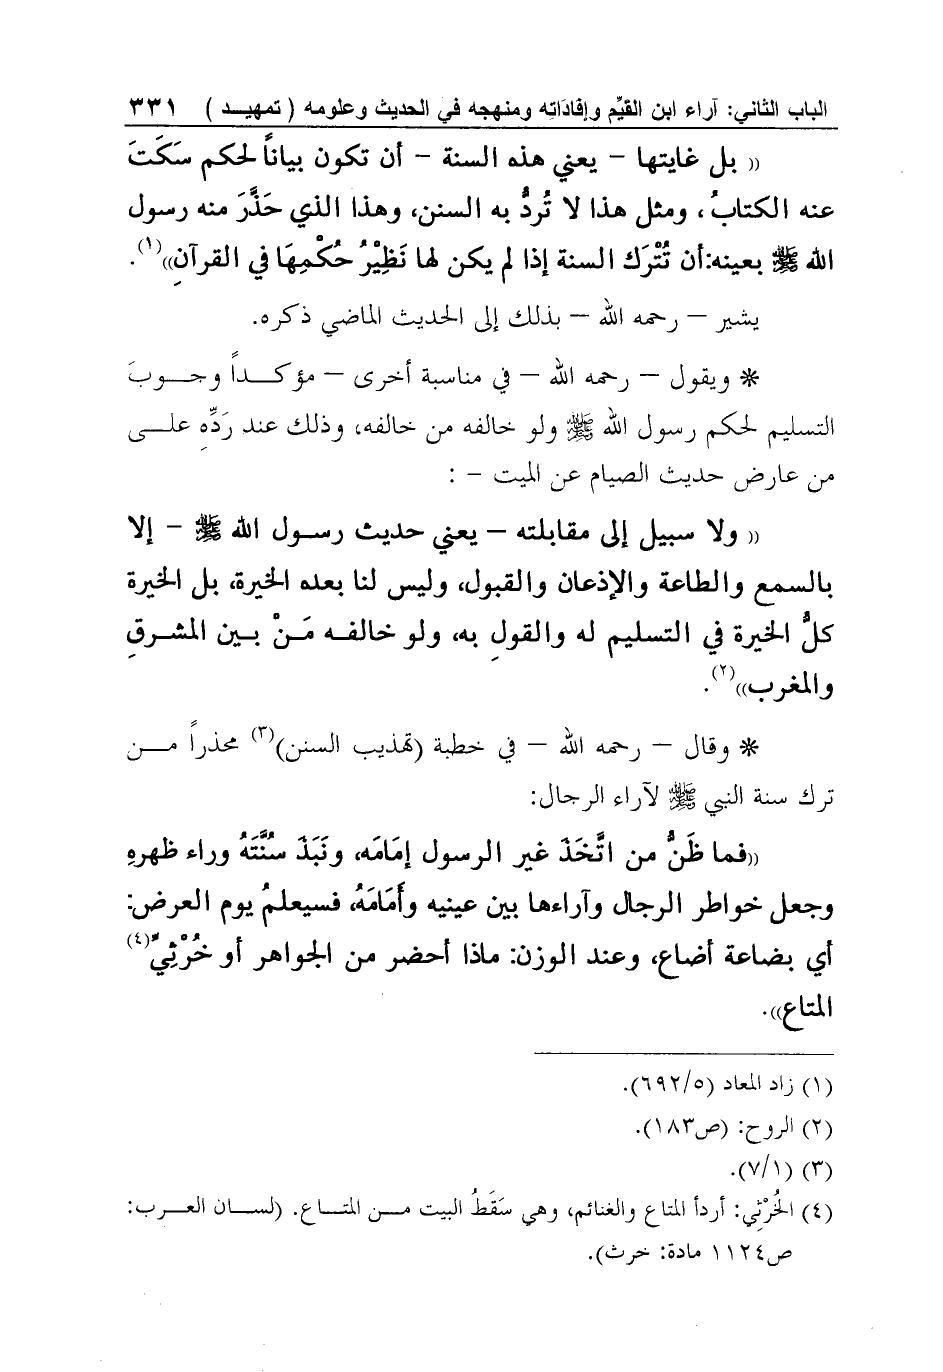 الباب الثاني: آراء ابن القيِّم وإفادَاته ومنهجه في الحديث وعلومه ( تمهيـــد ) ٣٣١
(( بل غايتها – يعني هذه السنة – أن تكون بياناً لحكم سَكَتَ
عنه الكتابُ، ومثل هذا لا تُردُّ به السنن، وهذا الذي حَذَّرَ منه رسول
الله ﷺ بعينه:أن تُتْرَك السنة إذا لم يكن لها نَظِيْرُ حُكْمِهَا في القرآنِ))(١).
يشير – رحمه الله – بذلك إلى الحديث الماضي ذكره.
* ويقول – رحمه الله – في مناسبة أخرى – مؤكـــداً وجـــوبَ
التسليم لحكم رسول الله ﷺ ولو خالفه من خالفه، وذلك عند رَدِّهِ علـــى
من عارض حديث الصيام عن الميت – :
(( ولا سبيل إلى مقابلته – يعني حديث رســول الله ﷺ – إلا
بالسمع والطاعة والإذعان والقبول، وليس لنا بعده الخيرة، بل الخيرة
كلُّ الخيرة في التسليم له والقولِ به، ولو خالفــه مَنْ بــين المشــرقِ
والمغرب))(٢).
* وقال – رحمه الله – في خطبة (تهذيب السنن)(٣) محذراً مـــن
ترك سنة النبي ﷺ لآراء الرجال:
((فما ظَنُّ من اتَّخَذَ غير الرسول إمَامَه، ونَبَذَ سُنَّتَهُ وراء ظهرهِ
وجعل خواطر الرجال وآراءها بين عينيه وأَمَامَهُ، فسيعلمُ يوم العرض:
أي بضاعة أضاع، وعند الوزن: ماذا أحضر من الجواهر أو خُرْثِيِّ(٤)
المتاع)).
(١) زاد المعاد (٦٩٢/٥).
(٢) الروح: (ص١٨٣).
(٣) (٧/١).
(٤) الخُرْثِي: أردأ المتاع والغنائم، وهي سَقَطُ البيت مـــن المتـــاع. (لســـان العـــرب:
ص١١٢٤ مادة: خرث).